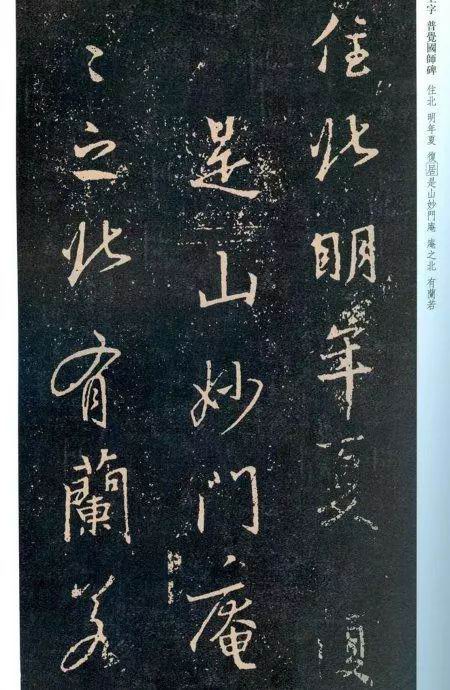 住北明年夏復
是山妙門庵
〻之北有蘭若
字 普覺國師碑 住北 明年夏 復居是山妙門庵 庵之北 有蘭若